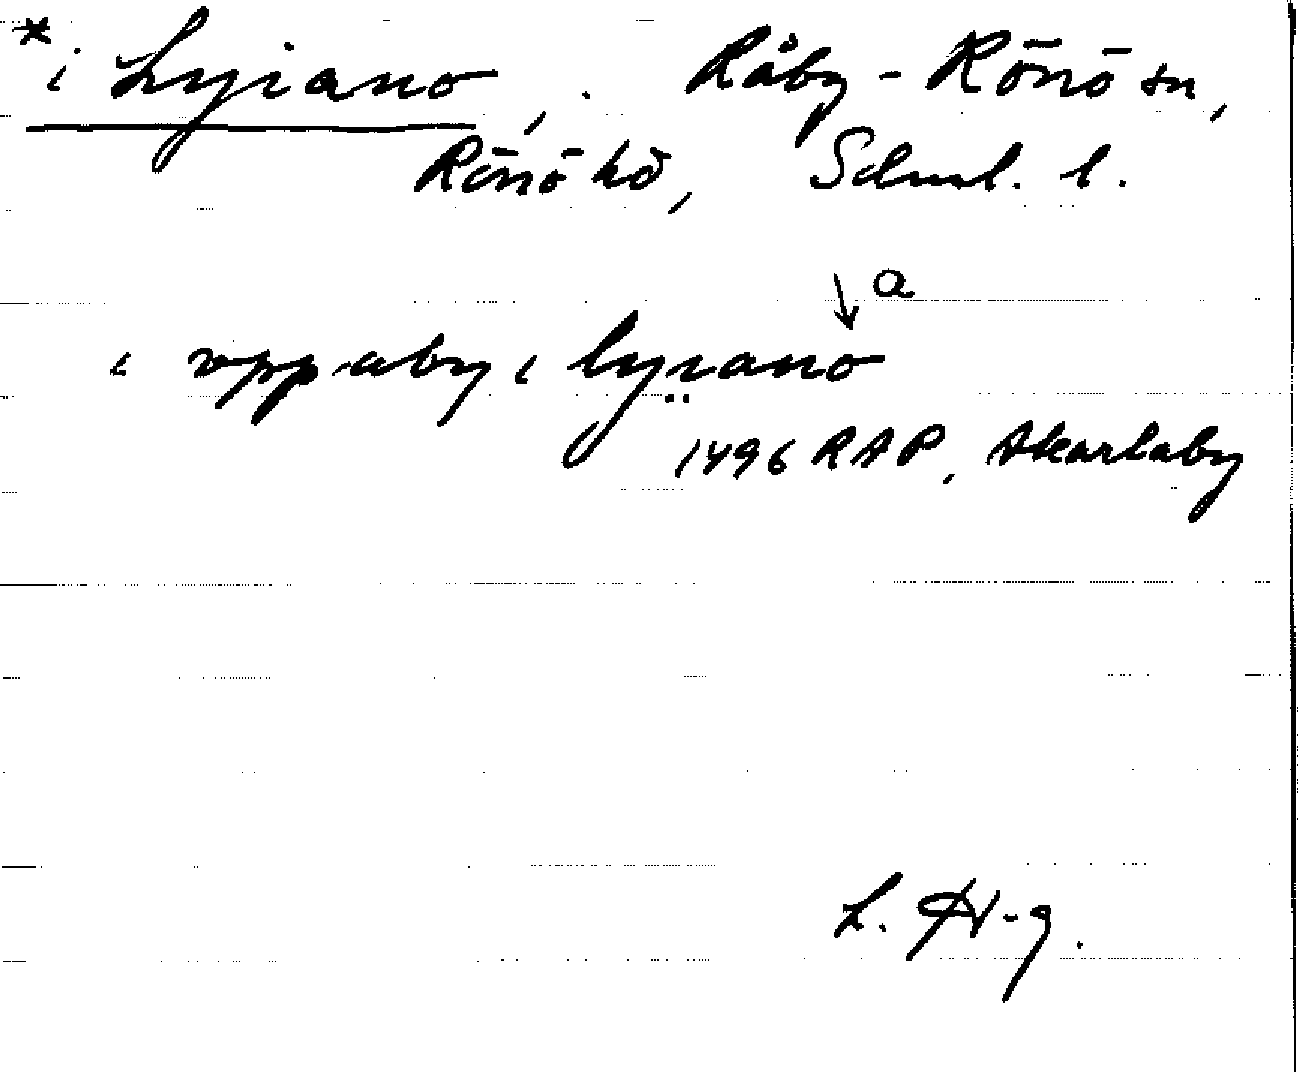 * i Lyiano, . Råby-Rönö sn,
Rönö hd, Södml. l.
↓ a
i vppaby i lyiano
1496 RAP, Akarlaby
L. Hl-g.